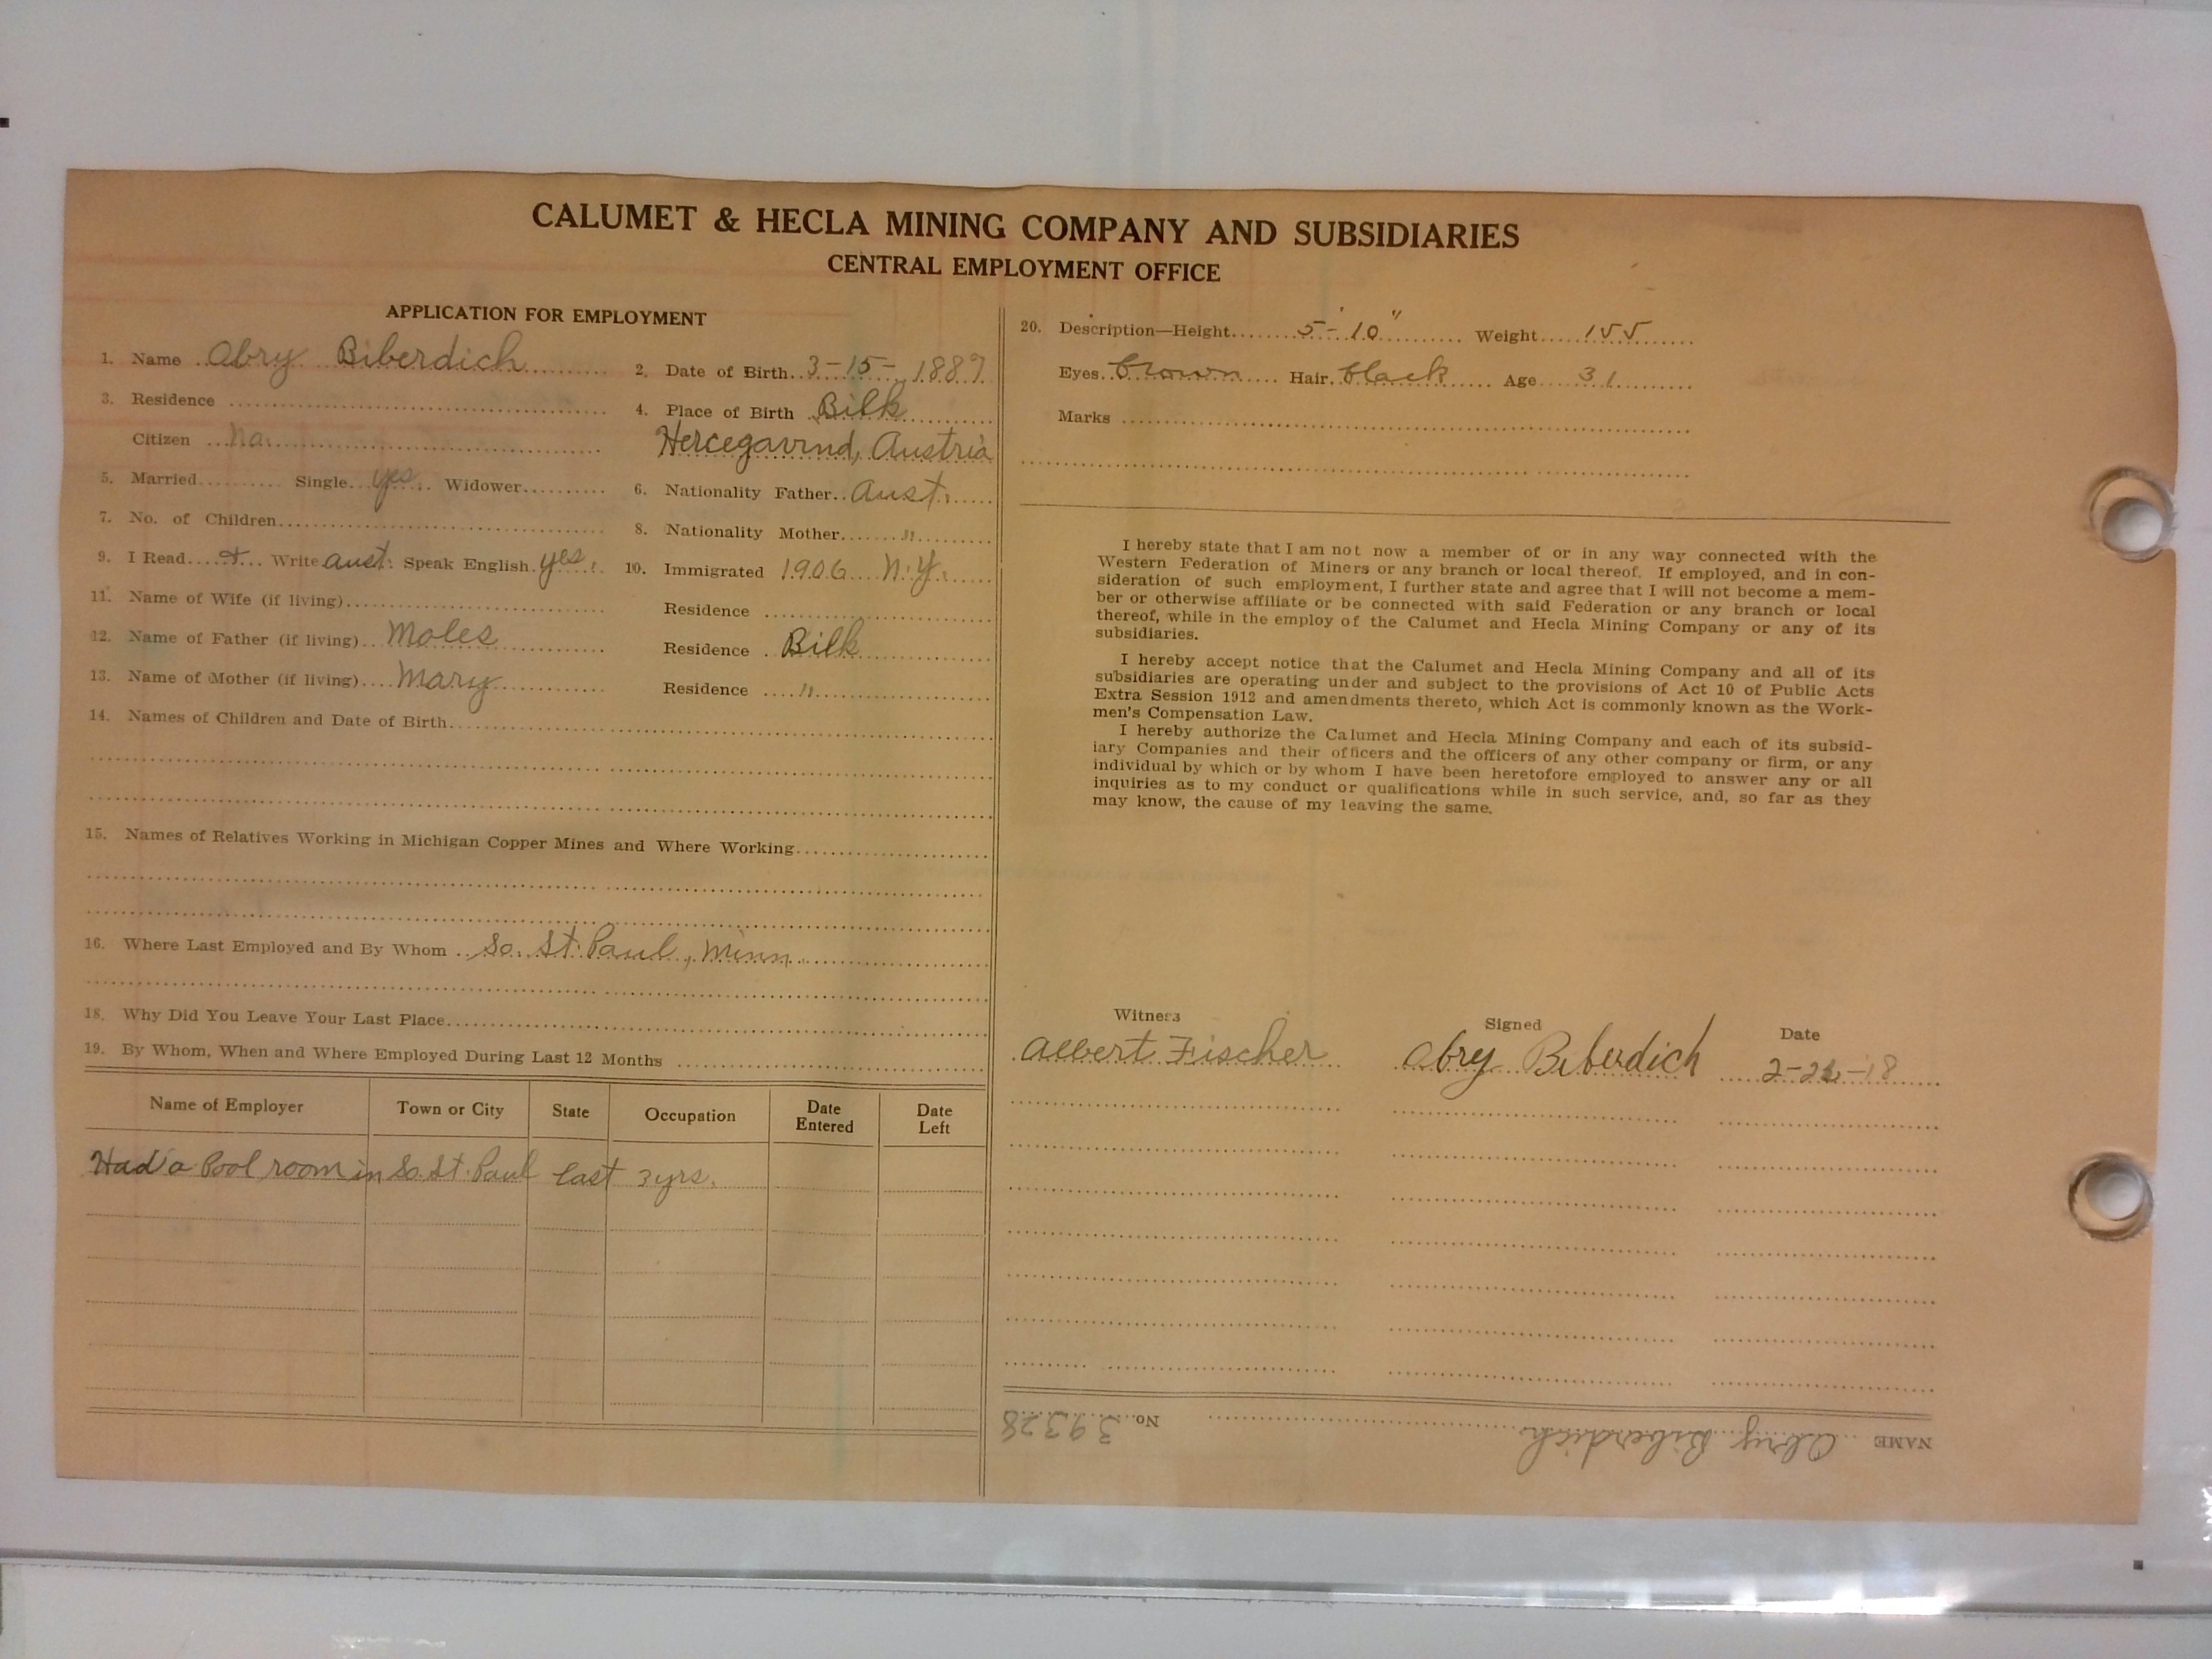 CALUMET & HECLA MINING COMPANY AND SUBSIDIARIES
CENTRAL EMPLOYMENT OFFICE
APPLICATION FOR EMPLOYMENT
1. Name Abry Biberdich 2. Date of Birth 3-15-1887
3. Residence 4. Place of Birth Bilk
Citizen no. Hercegavind, Austria
5. Married Single yes. Widower 6. Nationality Father Aust.
7. No. of Children 8. Nationality Mother "
9. I Read & Write Aust. Speak English yes. 10. Immigrated 1906 N.Y.
11. Name of Wife (if living) Residence
12. Name of Father (if living) Moles Residence Bilk
13. Name of Mother (if living) Mary Residence "
14. Names of Children and Date of Birth
15. Names of Relatives Working in Michigan Copper Mines and Where Working
16. Where Last Employed and By Whom So. St. Paul, Minn.
18. Why Did You Leave Your Last Place
19. By Whom, When and Where Employed During Last 12 Months
Name of Employer Town or City State Occupation Date Entered Date Left
Had a Pool room in So. St. Paul last 3 yrs.
20. Description—Height 5'-10" Weight 155
Eyes brown Hair black Age 31
Marks
I hereby state that I am not now a member of or in any way connected with the
Western Federation of Miners or any branch or local thereof. If employed, and in con-
sideration of such employment, I further state and agree that I will not become a mem-
ber or otherwise affiliate or be connected with said Federation or any branch or local
thereof, while in the employ of the Calumet and Hecla Mining Company or any of its
subsidiaries.
I hereby accept notice that the Calumet and Hecla Mining Company and all of its
subsidiaries are operating under and subject to the provisions of Act 10 of Public Acts
Extra Session 1912 and amendments thereto, which Act is commonly known as the Work-
men's Compensation Law.
I hereby authorize the Calumet and Hecla Mining Company and each of its subsid-
iary Companies and their officers and the officers of any other company or firm, or any
individual by which or by whom I have been heretofore employed to answer any or all
inquiries as to my conduct or qualifications while in such service, and, so far as they
may know, the cause of my leaving the same.
Witness Signed Date
Albert Fischer Abry Biberdich
NAME Abry Biberdich No. 39328